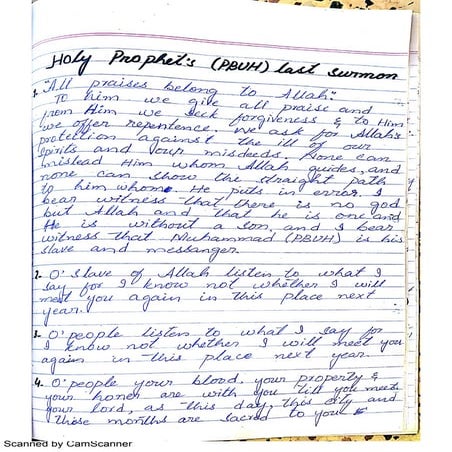 Holy Prophet's (PBUH) last surmon
1. "All praises belong to Allah."
To him we give all praise and
from Him we seek forgiveness & to Him
we offer repentence. We ask for Allah's
protection against the ill of our
spirits and our misdeeds. None can
mislead Him whom Allah guides, and
none can show the straight path
to him whome He puts in error. I
bear witness that there is no god
but Allah and that he is one and
He is without a son, and I bear
witness that Muhammad (PBUH) is his
slave and messanger
2. O' slave of Allah listen to what I
say for I know not whether I will
meet you again in this place next
year.
3. O' people listen to what I say for
I know not whether I will meet you
again in this place next year.
4. O' people your blood, your property &
your honer are with you till you meets
your lord, as this day, this city and
those months are sacred to you
Scanned by CamScanner